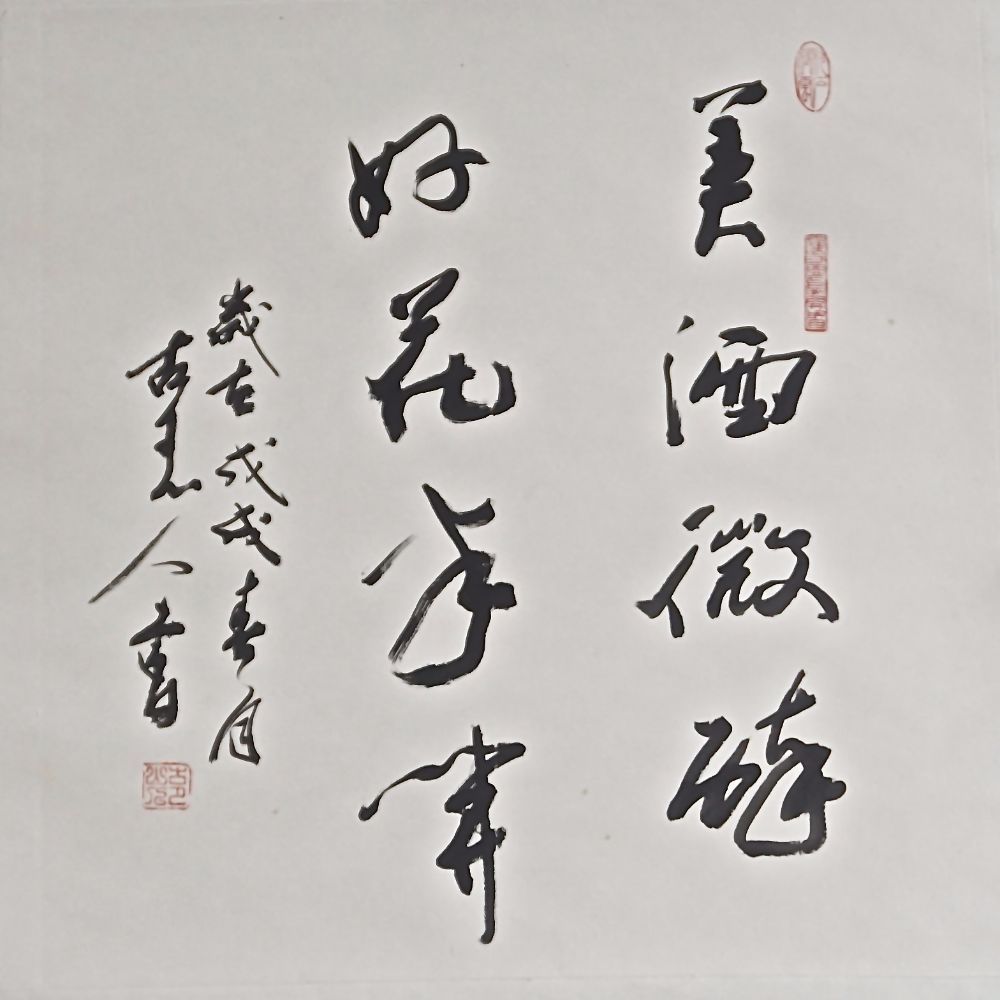 美酒微醉
好花半開
歲在戊戌春月
古老人書